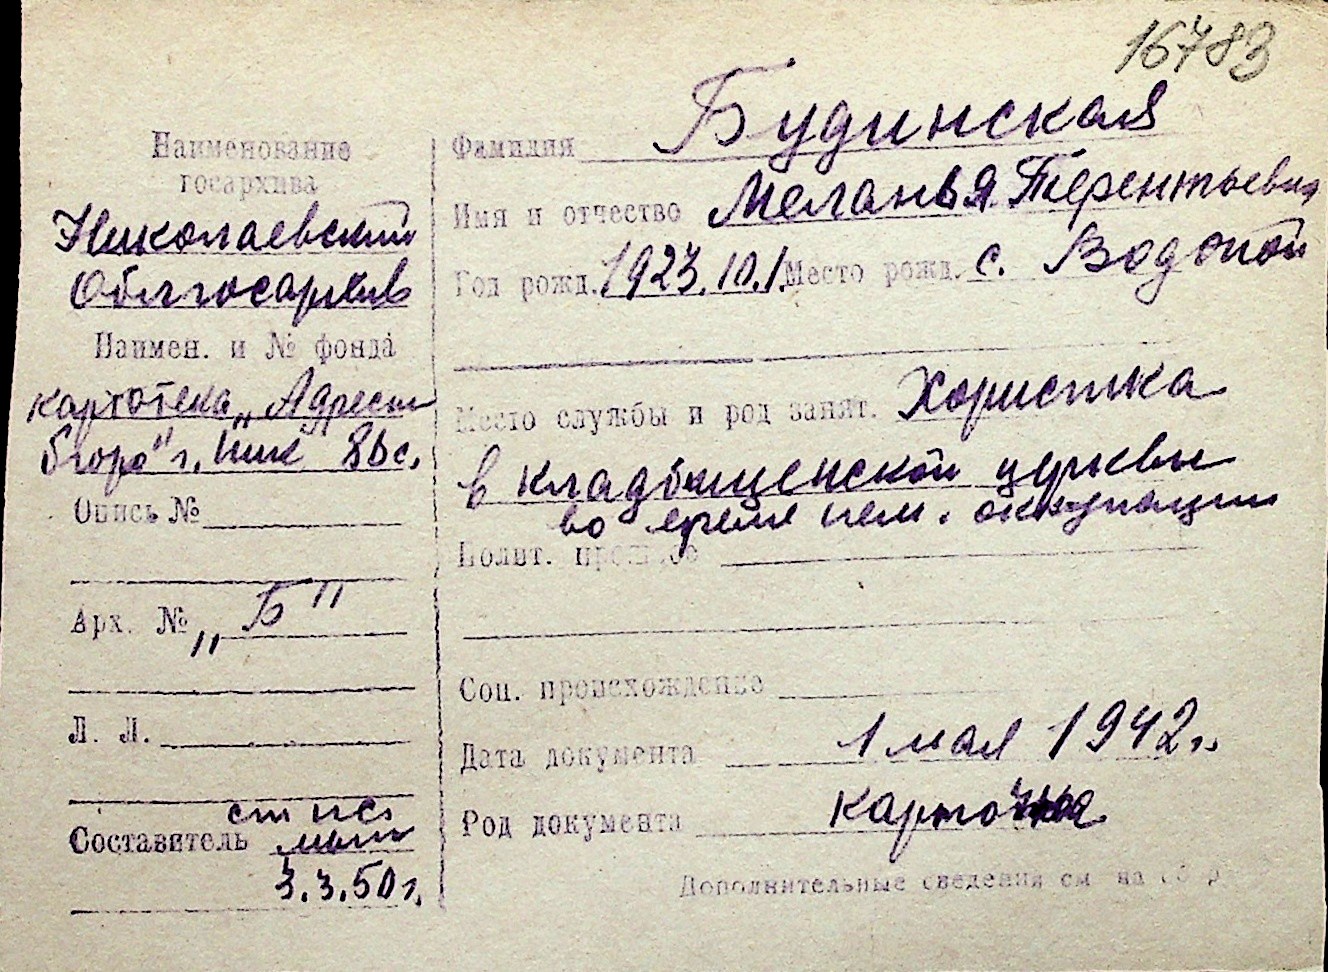 16783
Наименование
госархива
Николаевский
Облгосархив
Наимен. и № фонда
картотека „Адресн
бюро" г. Ник 86 с.
Опись №
Арх. № „Б"
Л. Л.
Составитель
3.3.50 г.
Фамилия Будинская
Имя и отчество Меланья Терентьевна
Год рожд. 1923.10.1. Место рожд. с. Водопой
Место службы и род занят. Хористка
в кладбищенской церкви
во время нем. оккупации
Полит. прошлое
Соц. происхождение
Дата документа 1 мая 1942 г.
Род документа карточка
Дополнительные сведения см на об р